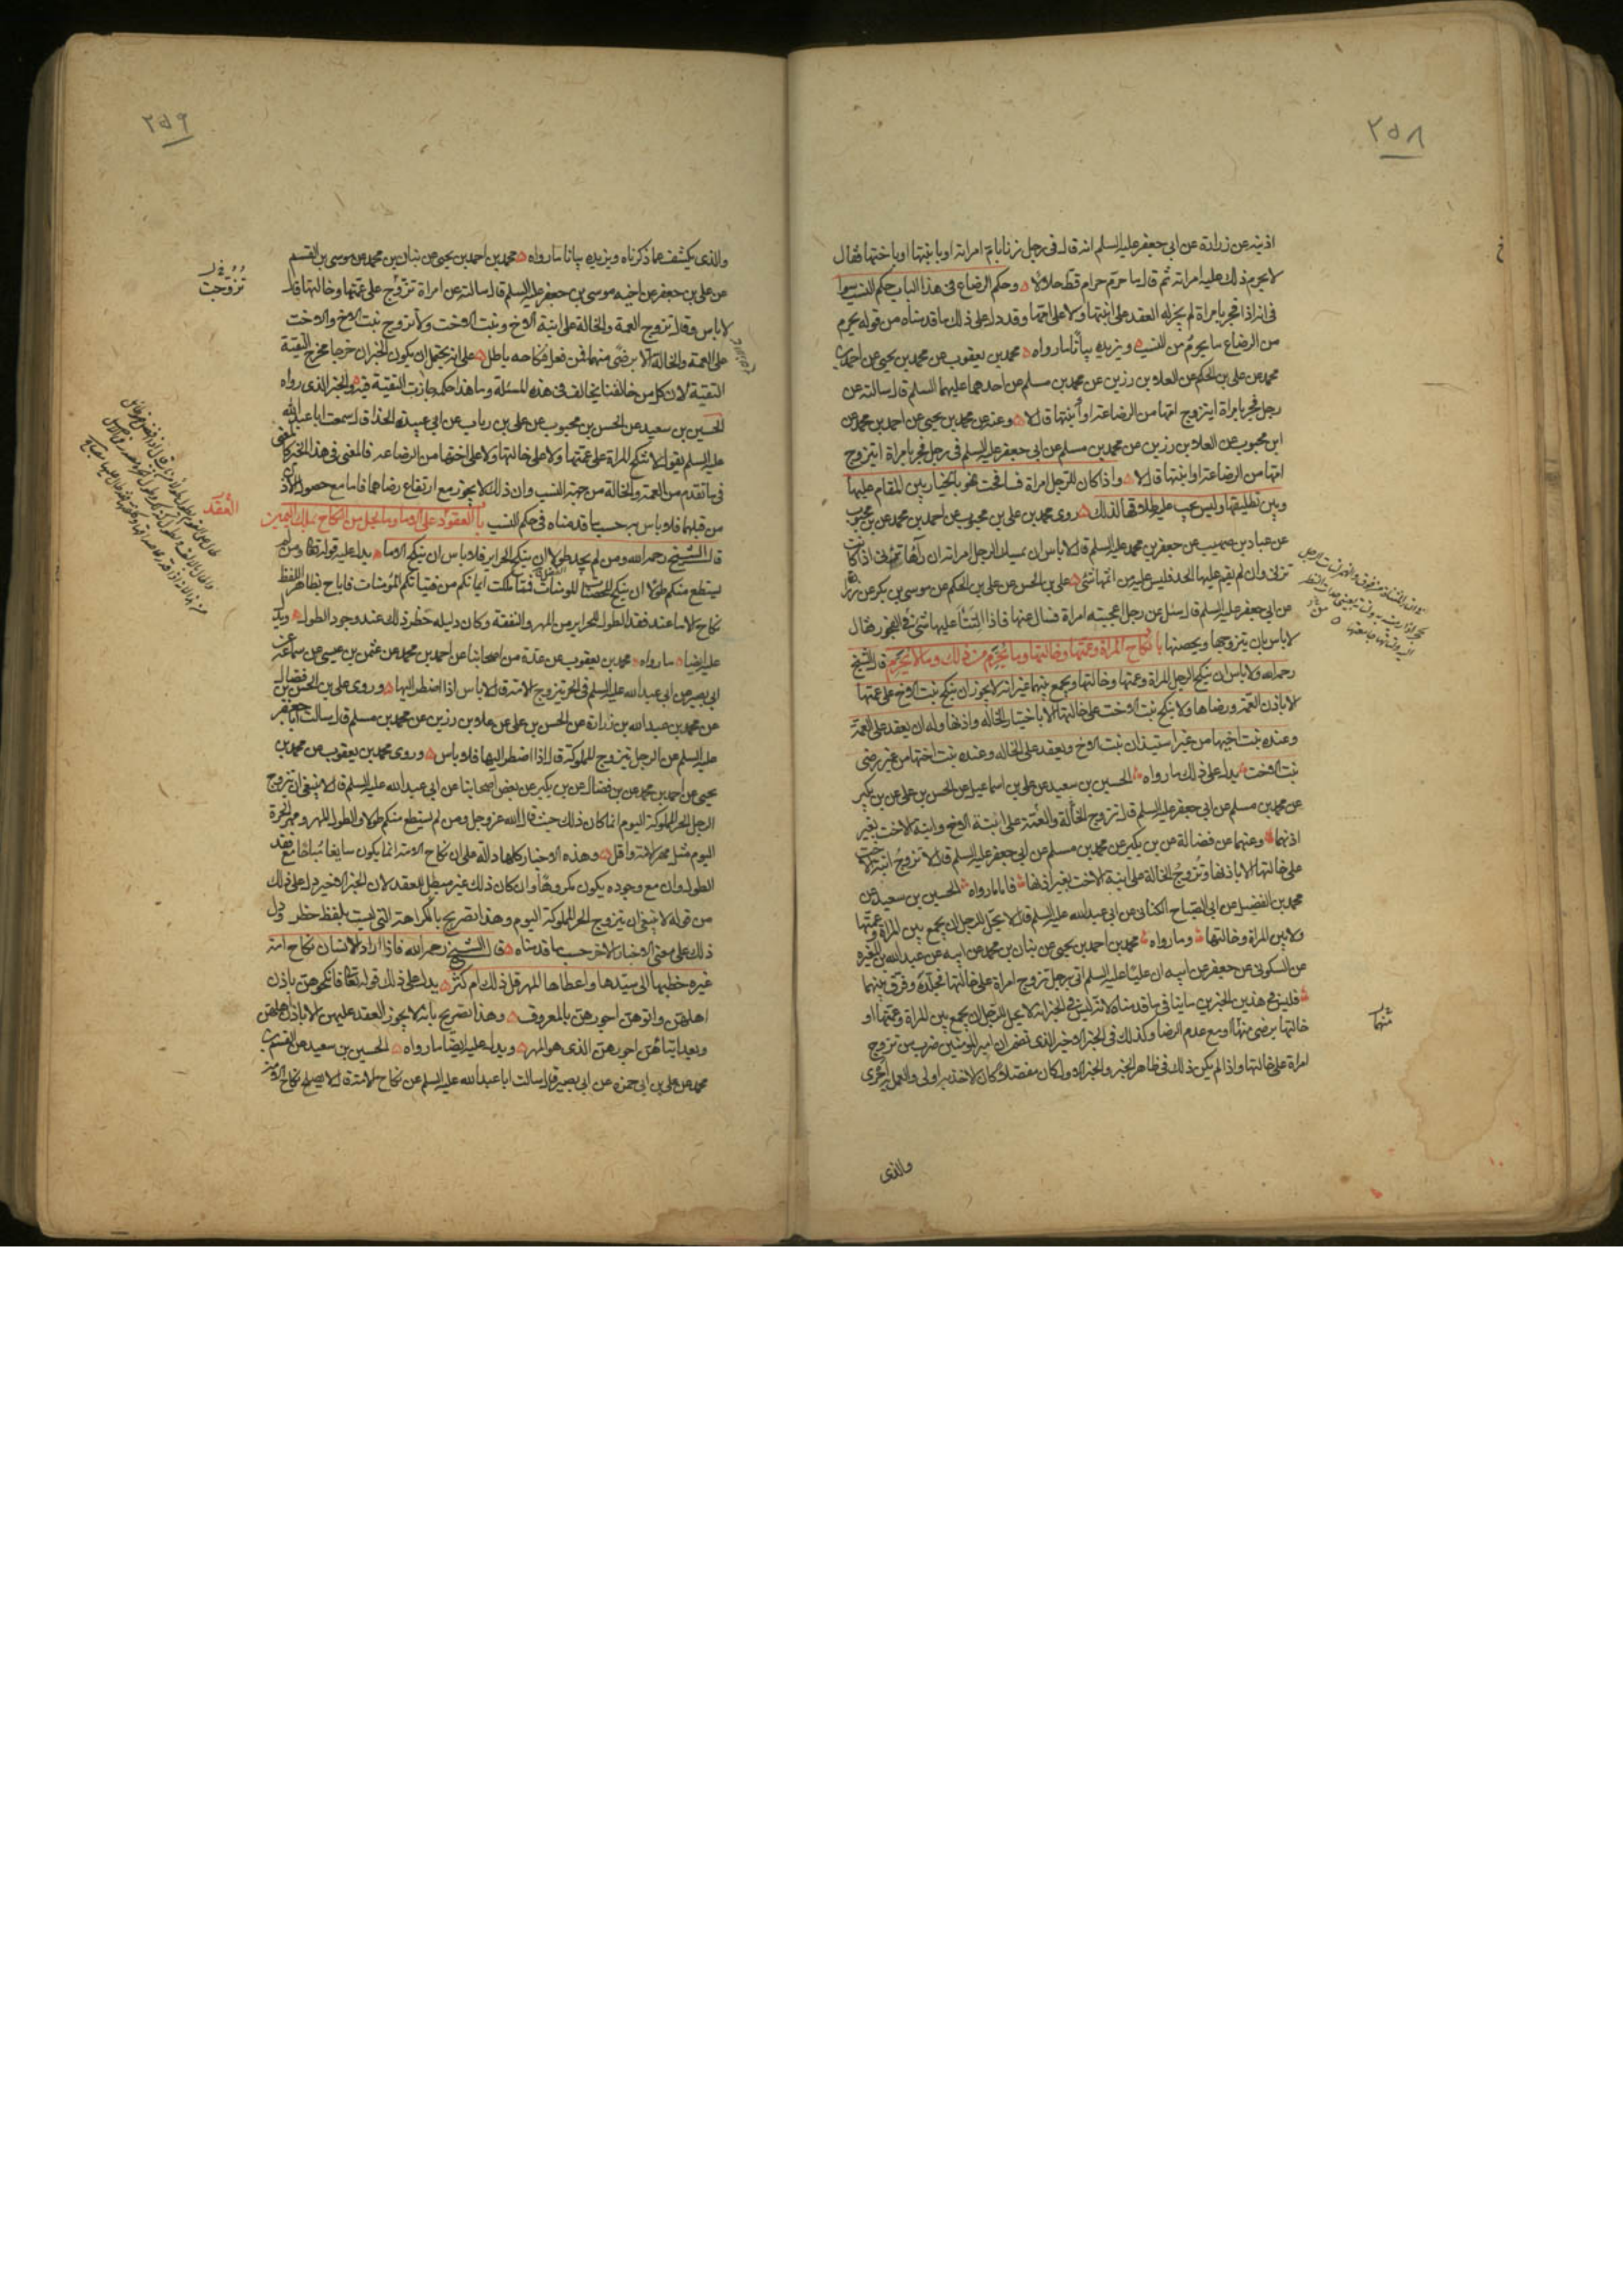 ٢٥٨
اذينه عن زرارة عن ابى جعفر عليه السلم انه قال فى رجل زنا بام امراته او بابنتها او باختها فقال
لا يحرم ذلك عليه امراته ثم قال ما حرم حرام قط حلالا وحكم الرضاع فى هذا الباب حكم النسب سوا
فى انه اذا فجر بامراة لم يجز له العقد على ابنتها ولا على امها وقد دل على ذلك ما قدمناه من قوله يحرم
من الرضاع ما يحرم من النسب ويزيده بيانا ما رواه محمد بن يعقوب عن محمد بن يحيى عن احمد بن
محمد عن على بن الحكم عن العلا بن رزين عن محمد بن مسلم عن احدهما عليهما السلم قال سالته عن
رجل فجر بامراة ايتزوج امها من الرضاعة او ابنتها قال لا وعنه عن محمد بن يحيى عن احمد بن محمد عن
ابن محبوب عن العلا بن رزين عن محمد بن مسلم عن ابى جعفر عليه السلم فى رجل فجر بامراة ايتزوج
امها من الرضاعة او ابنتها قال لا واذا كان للرجل امراة فسافحت فهو بالخيار بين المقام عليها
وبين تطليقها وليس يجب عليه طلاقها لذلك روى محمد بن على بن محبوب عن احمد بن محمد عن بن محبوب
عن عباد بن صهيب عن جعفر بن محمد عليه السلم قال لا باس ان يمسك الرجل امراته ان رآها تزنى اذا كانت
تزنى وان لم يقم عليها الحد فليس عليه من اثمها شئ على بن الحسن عن على بن الحكم عن موسى بن بكر عن زرارة
عن ابى جعفر عليه السلم قال سئل عن رجل اعجبته امراة فسال عنها فاذا الثنا عليها شئ فى الفجور فقال
لا باس بان يتزوجها ويحصنها باب نكاح المراة وعمتها وخالتها وما يحرم من ذلك وما لا يحرم قال الشيخ
رحمه الله ولا باس ان ينكح الرجل المراة وعمتها وخالتها ويجمع بينهما غير انه لا يجوز ان ينكح بنت الاخ على عمتها
الا باذن العمة ورضاها ولا ينكح بنت الاخت على خالتها الا باختيار الخالة واذنها وله ان يعقد على العمة
وعنده بنت اخيها من غير استيذان بنت الاخ ويعقد على الخالة وعنده بنت اختها من غير رضى
بنت الاخت يدل على ذلك ما رواه الحسين بن سعيد عن على بن اسماعيل عن الحسن بن على عن بن بكير
عن محمد بن مسلم عن ابى جعفر عليه السلم قال تزوج الخالة والعمة على ابنة الاخ وابنة الاخت بغير
اذنهما وعنهما عن فضالة عن بن بكير عن محمد بن مسلم عن ابى جعفر عليه السلم قال لا تزوج ابنة الاخت
على خالتها الا باذنها وتزوج الخالة على ابنة الاخت بغير اذنها فاما ما رواه الحسين بن سعيد عن
محمد بن الفضيل عن ابى الصباح الكنانى عن ابى عبد الله عليه السلم قال لا يحل للرجل ان يجمع بين المراة وعمتها
ولا بين المراة وخالتها وما رواه محمد بن احمد بن يحيى عن بنان بن محمد عن ابيه عن عبد الله بن المغيرة
عن السكونى عن جعفر عن ابيه ان عليا عليه السلم اتى برجل تزوج امراة على خالتها فجلده وفرق بينهما
فليس فى هذين الخبرين ما ينافى ما قدمناه لانه ليس فى الخبر انه لا يحل للرجل ان يجمع بين المراة وعمتها او
خالتها برضى منهما او مع عدم الرضا وكذلك فى الخبر الاخير الذى تضمن ان امير المومنين ضرب من تزوج
امراة على خالتها واذا لم يكن ذلك فى ظاهر الخبر والخبر الاول كان مفصلا كان الاخذ به اولى والعمل به احرى
منهما
والذى
٢٥٩
والذى يكشف عما ذكرناه ويزيده بيانا ما رواه محمد بن احمد بن يحيى عن بنان بن محمد عن موسى بن القسم
عن على بن جعفر عن اخيه موسى بن جعفر عليه السلم قال سالته عن امراة تزوج على عمتها وخالتها قال
لا باس وقال تزوج العمة والخالة على ابنة الاخ وبنت الاخت ولا تزوج بنت الاخ والاخت
على العمة والخالة الا برضى منهما فمن فعل فنكاحه باطل على انه يحتمل ان يكون الخبران خرجا مخرج التقية
التقية لان كل من خالفنا يخالف فى هذه المسئلة وما هذا حكمه جازت التقية فيه والخبر الذى رواه
الحسين بن سعيد عن الحسن بن محبوب عن على بن رياب عن ابى عبيدة الحذا قال سمعت ابا عبد الله
عليه السلم يقول لا تنكح المراة على عمتها ولا على خالتها ولا على اختها من الرضاعة فالمعنى فى هذا الخبر كالمعنى
فى ما تقدم من العمة والخالة من جهة النسب وان ذلك لا يجوز مع ارتفاع رضاهما فاما مع حصول الاذن
من قبلهما فلا باس به حسب ما قدمناه فى حكم النسب باب العقود على الاما وما يحل من النكاح بملك اليمين
العقد
قال الشيخ رحمه الله ومن لم يجد طولا ان ينكح الحراير فلا باس ان ينكح الاما يدل عليه قوله تعالى ومن لم
يستطع منكم طولا ان ينكح المحصنات المومنات فمما ملكت ايمانكم من فتياتكم المومنات فاباح بظاهر اللفظ
نكاح الاما عند فقد الطول للحراير من المهر والنفقة وكان دليله حظر ذلك عند وجود الطول ويدل
عليه ايضا ما رواه محمد بن يعقوب عن عدة من اصحابنا عن احمد بن محمد عن عثمن بن عيسى عن سماعة عن
ابى بصير عن ابى عبد الله عليه السلم فى الحر يتزوج الامة قال لا باس اذا اضطر اليها وروى على بن الحسن بن فضال
عن محمد بن عبد الله بن زرارة عن الحسن بن على عن علا بن رزين عن محمد بن مسلم قال سالت ابا جعفر
عليه السلم عن الرجل يتزوج المملوكة قال اذا اضطر اليها فلا باس وروى محمد بن يعقوب عن محمد بن
يحيى عن احمد بن محمد عن بن فضال عن بن بكير عن بعض اصحابنا عن ابى عبد الله عليه السلم قال لا ينبغى ان يتزوج
الرجل الحر المملوكة اليوم انما كان ذلك حيث قال الله عز وجل ومن لم يستطع منكم طولا والطول المهر ومهر الحرة
اليوم مثل مهر الامة واقل وهذه الاخبار كلها دالة على ان نكاح الامة انما يكون سايغا مباحا مع فقد
الطول وان مع وجوده يكون مكروها وان كان ذلك غير مبطل للعقد لان الخبر الاخير دل على ذلك
من قوله لا ينبغى ان يتزوج الحر المملوكة اليوم وهذا تصريح بالكراهة التى ليست بلفظ حظر ودل
ذلك على معنى الاخبار الاخر حسب ما قدمناه قال الشيخ رحمه الله فاذا اراد الانسان نكاح امة
غيره خطبها الى سيدها واعطاها المهر قل ذلك ام كثر يدل على ذلك قوله تعالى فانكحوهن باذن
اهلهن واتوهن اجورهن بالمعروف وهذا تصريح بانه لا يجوز العقد عليهن الا باذن اهلهن
وبعد ايتائهن اجورهن الذى هو المهر ويدل عليه ايضا ما رواه الحسين بن سعيد عن القسم بن
محمد عن على بن ابى حمزة عن ابى بصير قال سالت ابا عبد الله عليه السلم عن نكاح الامة قال لا يصلح نكاح الامة